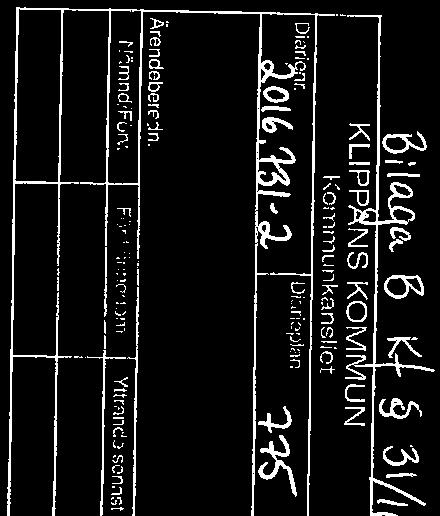 Bilaga B Kf § 31/1
KLIPPANS KOMMUN
Kommunkansliet
Diarienr. Diarieplan
2016.731-2 775
Ärendeberedn.
Nämnd/Förv. Yttrande senast